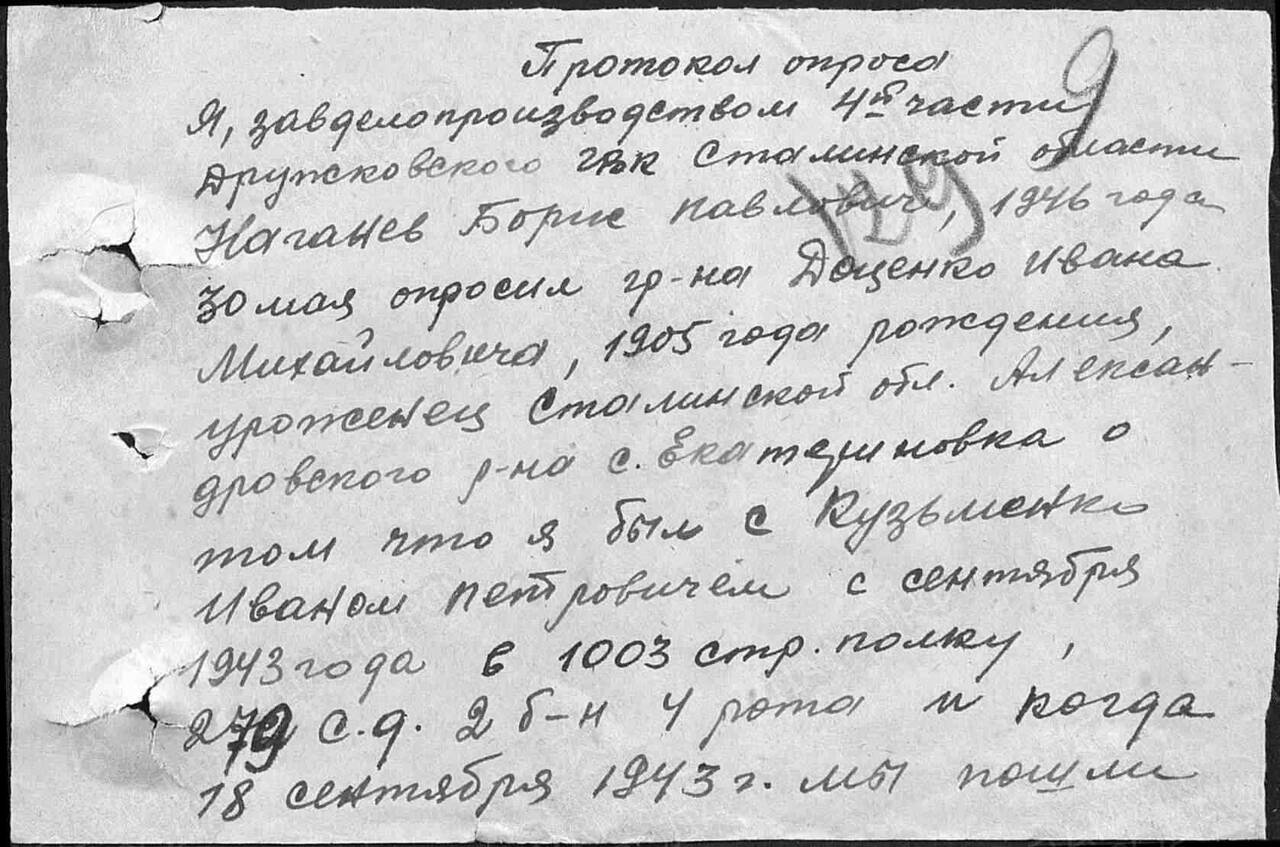 Протокол опроса
9
Я, завделопроизводством 4й части
Дружковского ГВК Сталинской области
Наганев Борис Павлович, 1946 года
129
30 мая опросил гр-на Доценко Ивана
Михайловича, 1905 года рождения,
уроженец Сталинской обл. Алексан-
дровского р-на с. Екатериновка о
том что я был с Кузьменко
Иваном Петровичем с сентября
1943 года в 1003 стр. полку,
279 с.д. 2 б-н 4 рота и когда
18 сентября 1943 г. мы пошли